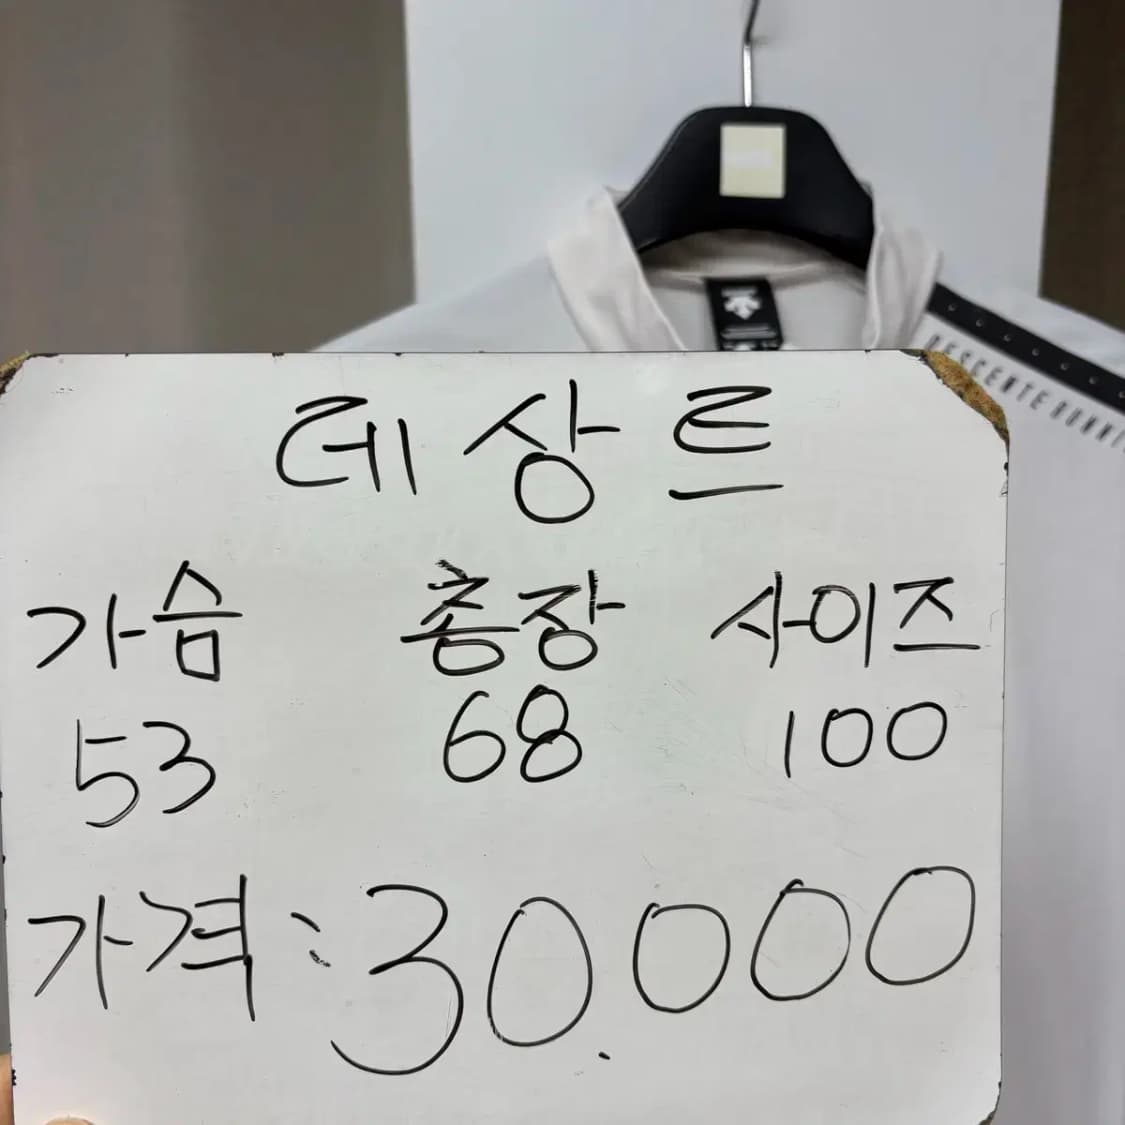 DESCENTE RUNNI
데상트
가슴 총장 사이즈
53 68 100
가격: 30.000